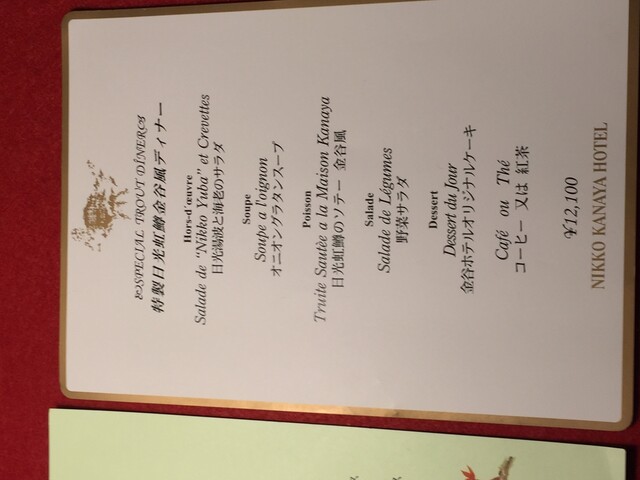 SPECIAL TROUT DINER
特製日光虹鱒金谷風ディナー
Hors-d'œuvre
Salade de "Nikko Yuba" et Crevettes
日光湯波と海老のサラダ
Soupe
Soupe a l'oignon
オニオングラタンスープ
Poisson
Truite Sautèe a la Maison Kanaya
日光虹鱒のソテー 金谷風
Salade
Salade de Légumes
野菜サラダ
Dessert
Dessert du Jour
金谷ホテルオリジナルケーキ
Café ou Thé
コーヒー 又は 紅茶
¥12,100
NIKKO KANAYA HOTEL